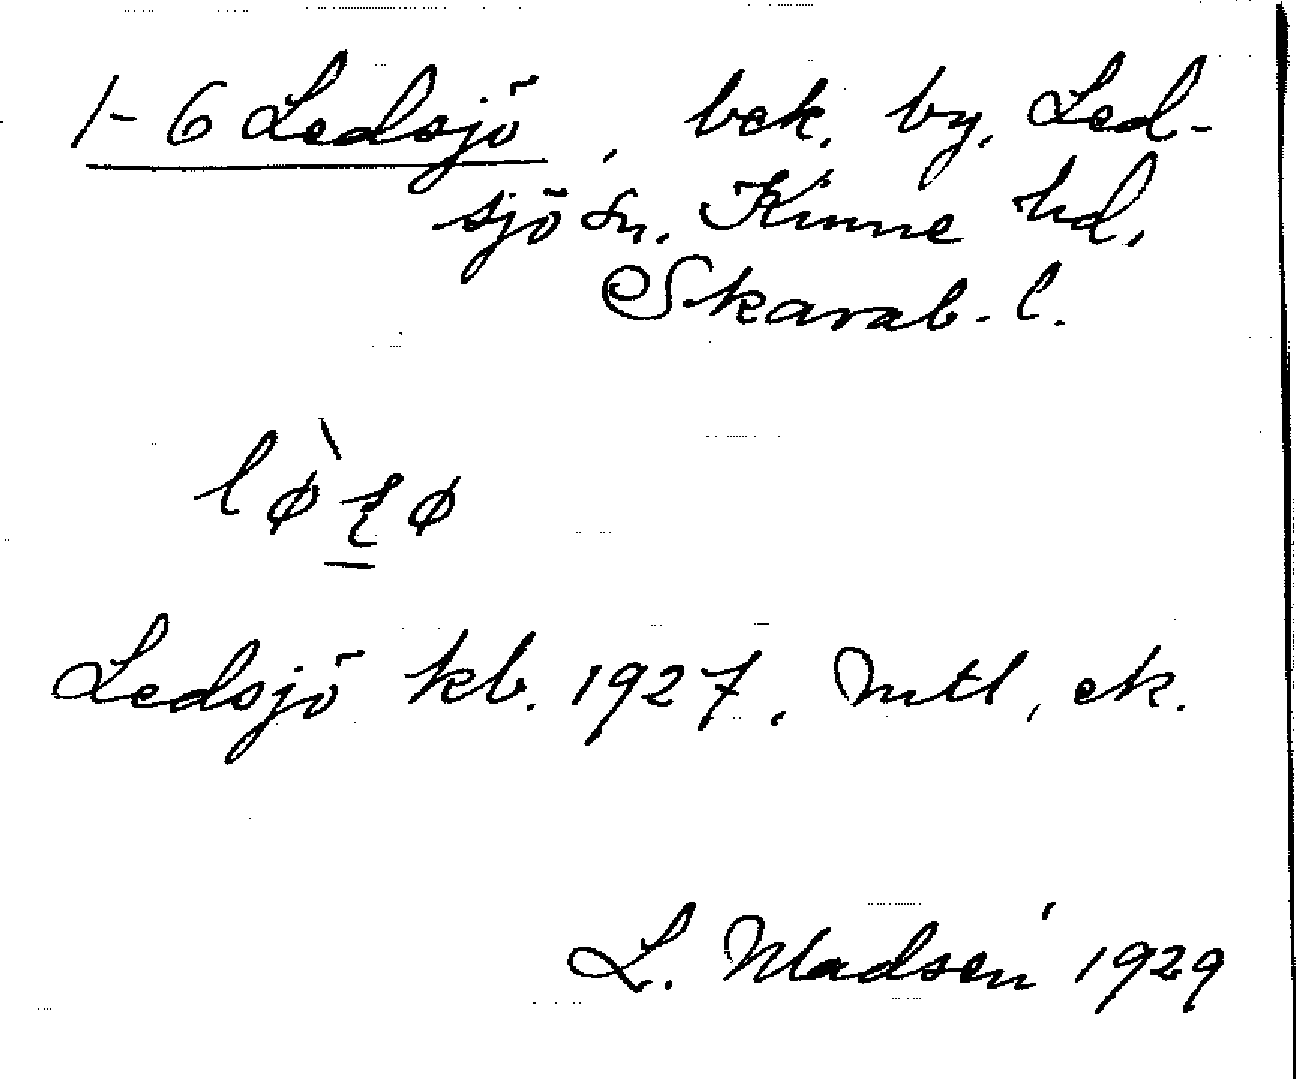 1-6 Ledsjö, bek. by, Led-
sjö sn. Kinne hd,
Skarab. l.
Ledsjö kb. 1927, Mtl, ek.
L. Madsén 1929